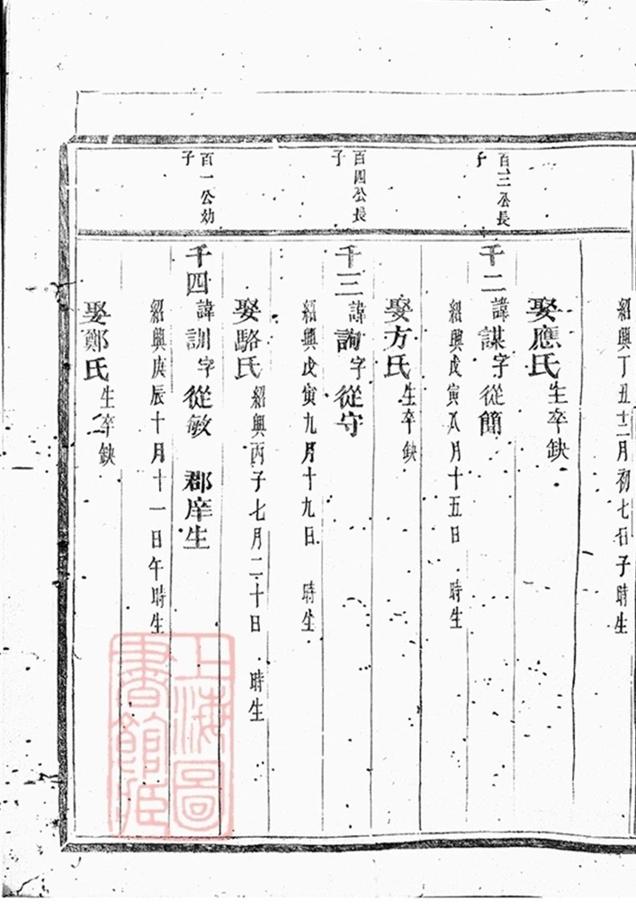 紹興丁丑十二月初七日子時生
娶應氏生卒缺
百三公長
子
千二諱謀字從簡
紹興戊寅八月十五日 時生
娶方氏生卒缺
百四公長
子
千三諱詢字從守
紹興戊寅九月十九日 時生
娶駱氏紹興丙子七月二十日 時生
百一公幼
子
千四諱訓字從敏 郡庠生
紹興庚辰十月十一日午時生
娶鄭氏生卒缺
上海圖
書館藏